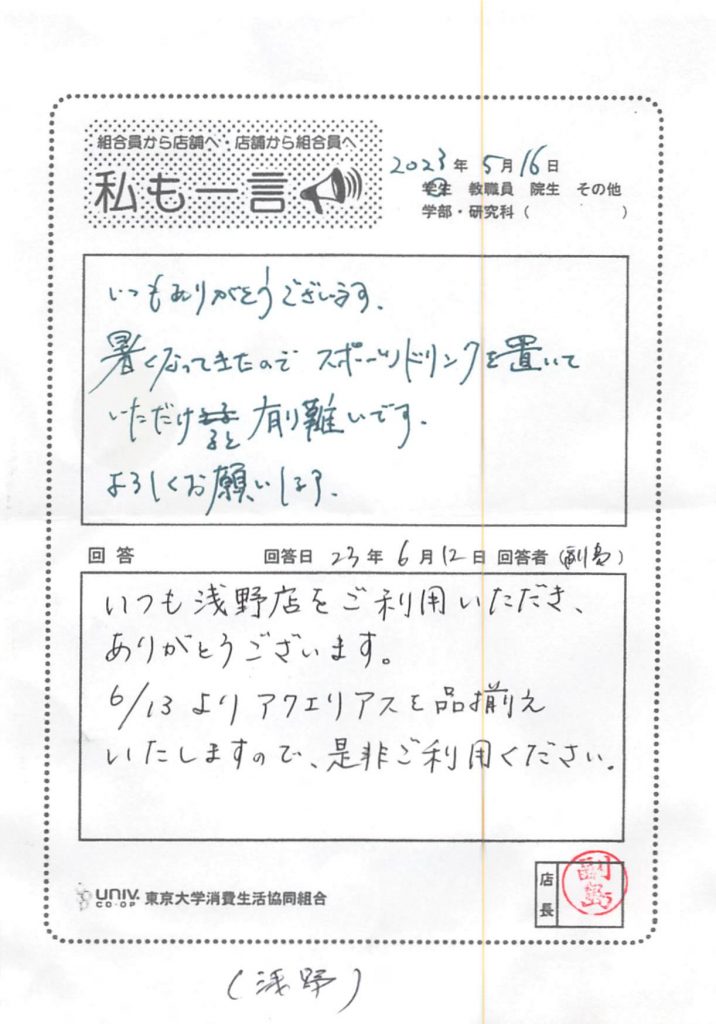 組合員から店舗へ・店舗から組合員へ
私も一言
2023年 5月16日
学生 教職員 院生 その他
学部・研究科（ ）
いつもありがとうございます。
暑くなってきたので スポーツドリンクを置いて
いただけると 有り難いです。
よろしくお願いします。
回答 回答日 23年 6月12日 回答者（副島）
いつも浅野店をご利用いただき、
ありがとうございます。
6/13 より アクエリアスを品揃え
いたしますので、是非ご利用ください。
UNIV. CO-OP 東京大学消費生活協同組合
店長 副島
(浅野)